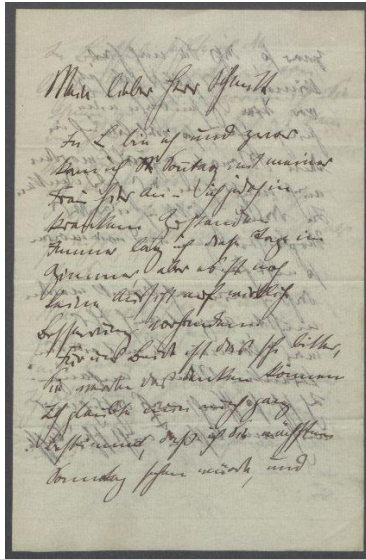 Mein lieber Herr Schmidt
In L. bin ich und zwar
kam ich Sonntag mit meiner
Frau hier an. Sich jedoch in
krankem Zustande
Immer lag ich diese Tage im
Zimmer aber es ist noch
keine Aussicht auf wirkliche
Besserung vorhanden.
Für uns Beide ist das sehr bitter,
Sie werden das denken können
Ich glaube noch ganz
bestimmt, daß ich Sie nächsten
Sonntag sehen würde, und